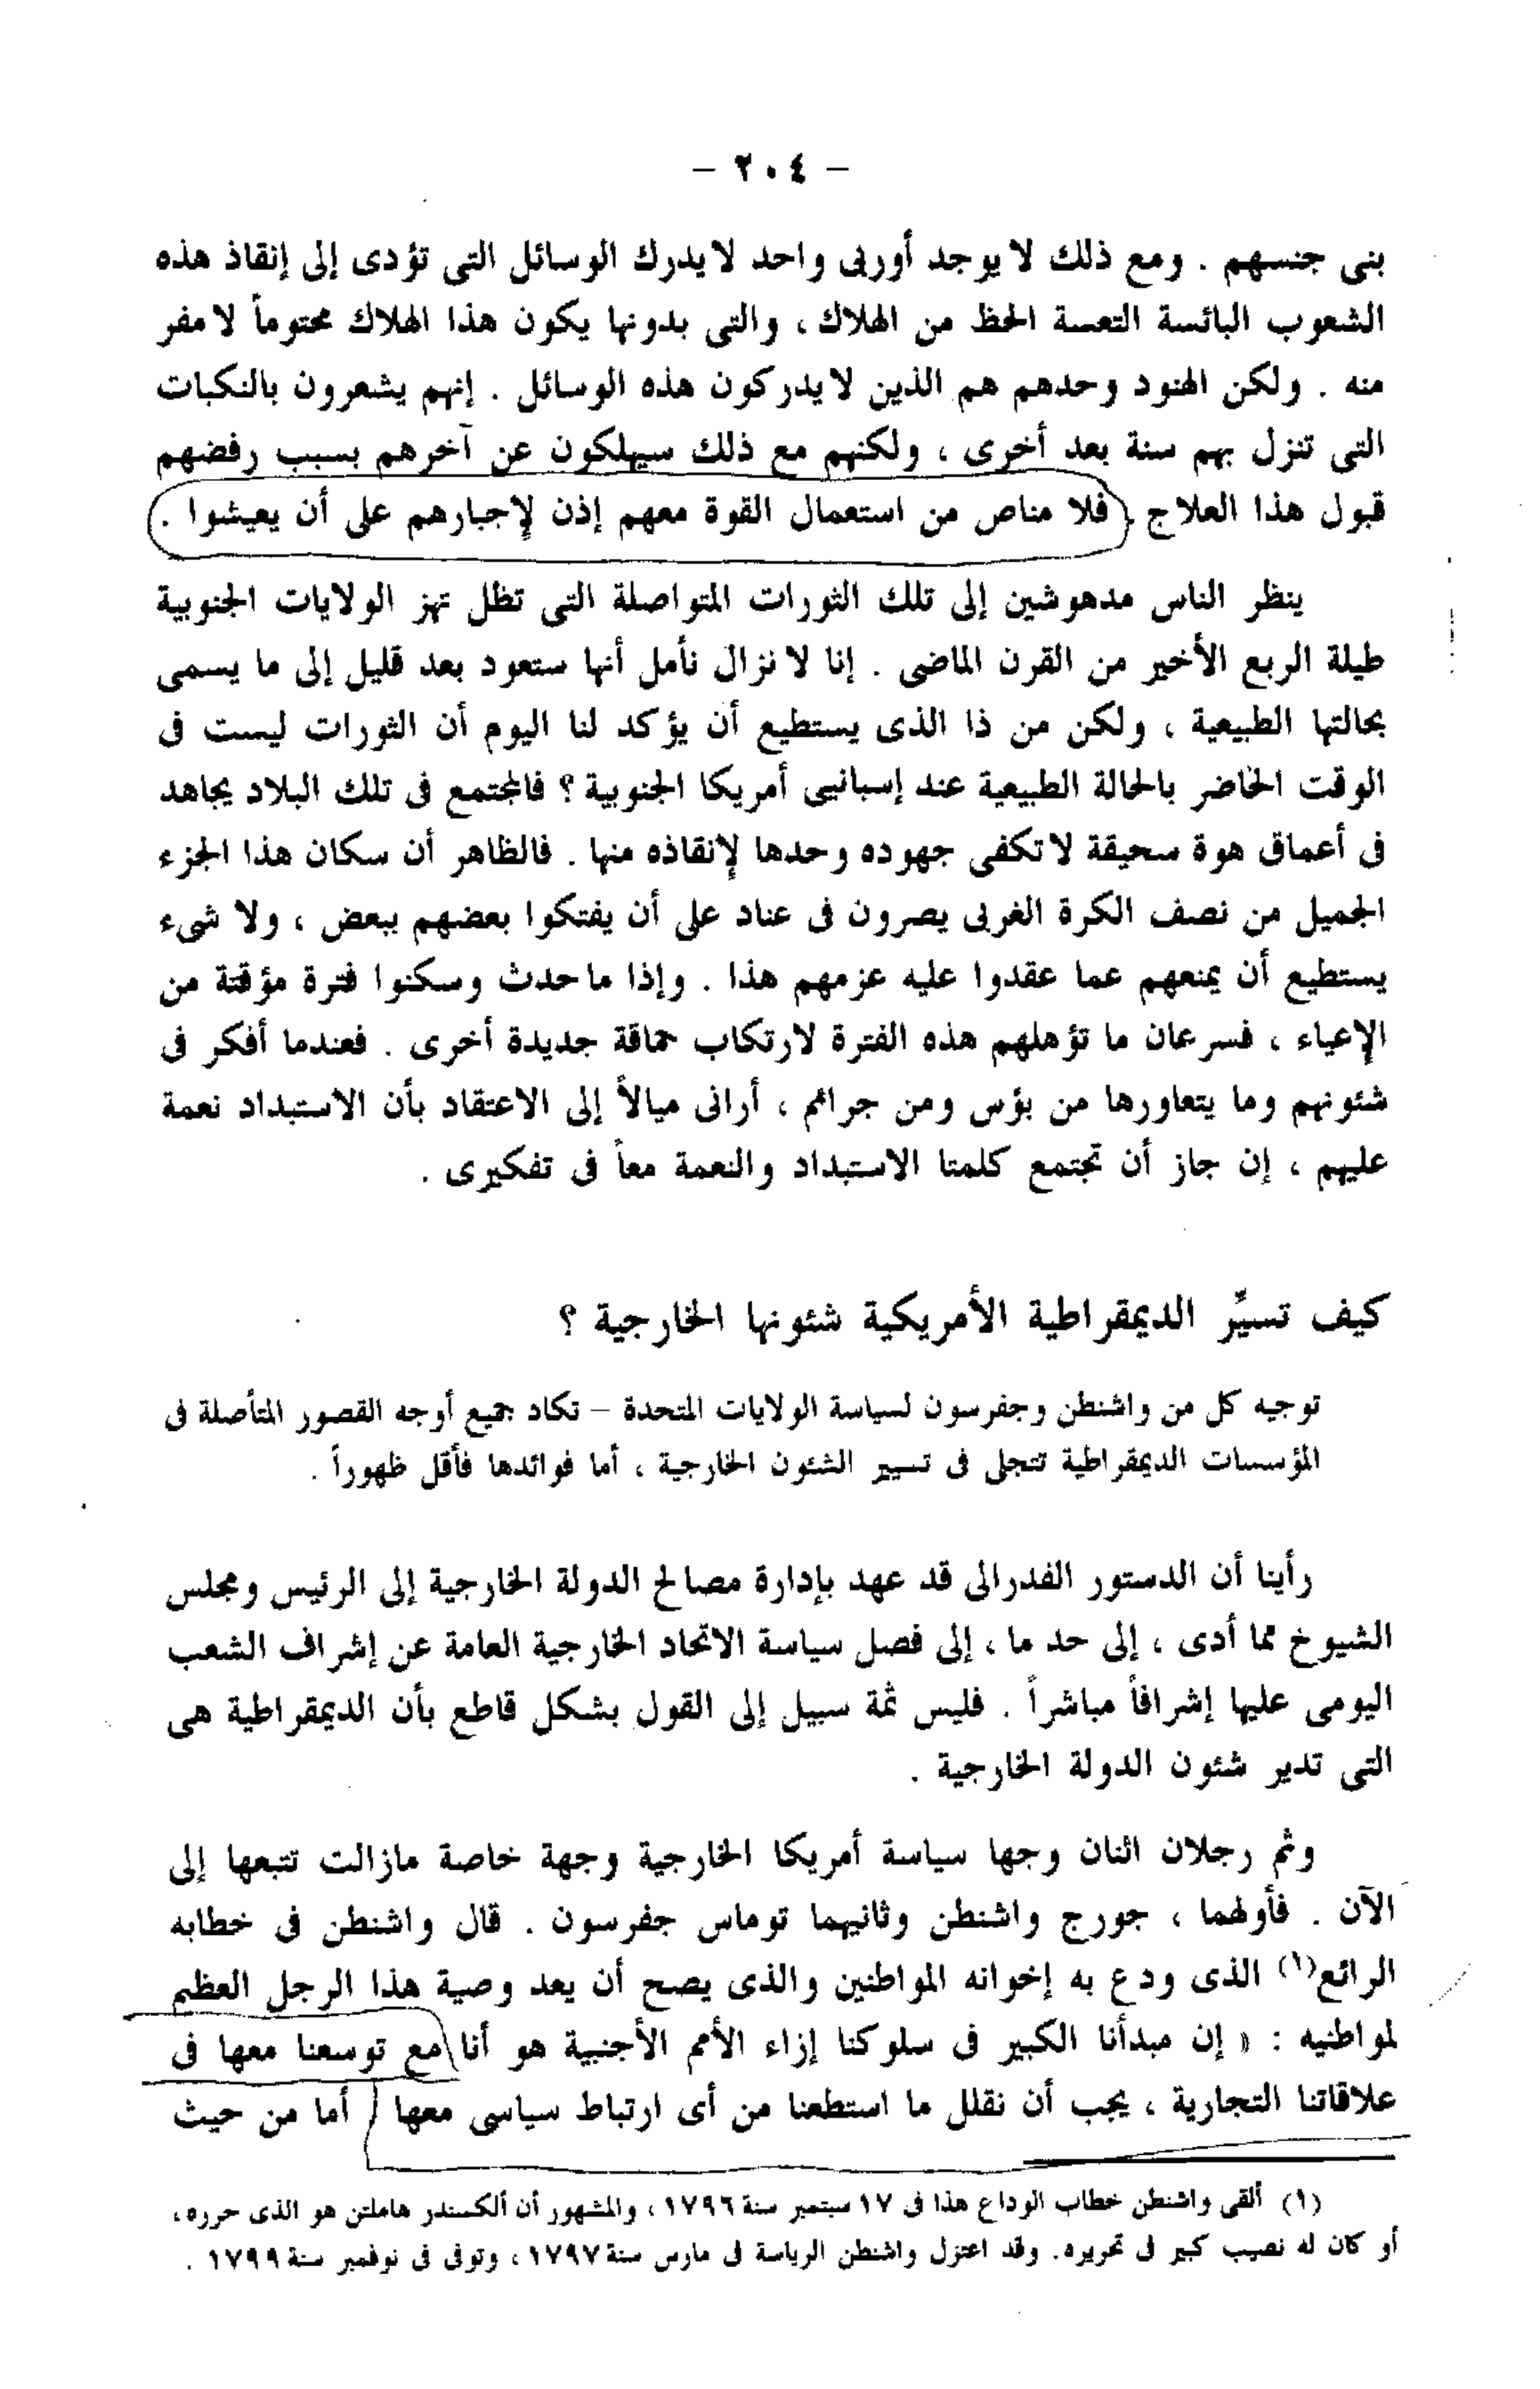 – ٢٠٤ –
بنى جنسهم . ومع ذلك لا يوجد أوربى واحد لا يدرك الوسائل التى تؤدى إلى إنقاذ هذه
الشعوب البائسة التعسة الحظ من الهلاك ، والتى بدونها يكون هذا الهلاك محتوماً لا مفر
منه . ولكن الهنود وحدهم هم الذين لا يدركون هذه الوسائل . إنهم يشعرون بالنكبات
التى تنزل بهم سنة بعد أخرى ، ولكنهم مع ذلك سيهلكون عن آخرهم بسبب رفضهم
قبول هذا العلاج . فلا مناص من استعمال القوة معهم إذن لإجبارهم على أن يعيشوا .
ينظر الناس مدهوشين إلى تلك الثورات المتواصلة التى تظل تهز الولايات الجنوبية
طيلة الربع الأخير من القرن الماضى . إنا لا نزال نأمل أنها ستعود بعد قليل إلى ما يسمى
بحالتها الطبيعية ، ولكن من ذا الذى يستطيع أن يؤكد لنا اليوم أن الثورات ليست فى
الوقت الحاضر بالحالة الطبيعية عند إسبانيى أمريكا الجنوبية ؟ فالمجتمع فى تلك البلاد يجاهد
فى أعماق هوة سحيقة لا تكفى جهوده وحدها لإنقاذه منها . فالظاهر أن سكان هذا الجزء
الجميل من نصف الكرة الغربى يصرون فى عناد على أن يفتكوا بعضهم ببعض ، ولا شىء
يستطيع أن يمنعهم عما عقدوا عليه عزمهم هذا . وإذا ما حدث وسكنوا فترة مؤقتة من
الإعياء ، فسرعان ما تؤهلهم هذه الفترة لارتكاب حماقة جديدة أخرى . فعندما أفكر فى
شئونهم وما يتعاورها من بؤس ومن جرائم ، أرانى ميالاً إلى الاعتقاد بأن الاستبداد نعمة
عليهم ، إن جاز أن تجتمع كلمتا الاستبداد والنعمة معاً فى تفكيرى .
كيف تسيِّر الديمقراطية الأمريكية شئونها الخارجية ؟
توجيه كل من واشنطن وجفرسون لسياسة الولايات المتحدة – تكاد جميع أوجه القصور المتأصلة فى
المؤسسات الديمقراطية تتجلى فى تسيير الشئون الخارجية ، أما فوائدها فأقل ظهوراً .
رأينا أن الدستور الفدرالى قد عهد بإدارة مصالح الدولة الخارجية إلى الرئيس ومجلس
الشيوخ مما أدى ، إلى حد ما ، إلى فصل سياسة الاتحاد الخارجية العامة عن إشراف الشعب
اليومى عليها إشرافاً مباشراً . فليس ثمة سبيل إلى القول بشكل قاطع بأن الديمقراطية هى
التى تدير شئون الدولة الخارجية .
وثم رجلان اثنان وجها سياسة أمريكا الخارجية وجهة خاصة مازالت تتبعها إلى
الآن . فأولهما ، جورج واشنطن وثانيهما توماس جفرسون . قال واشنطن فى خطابه
الرائع(١) الذى ودع به إخوانه المواطنين والذى يصح أن يعد وصية هذا الرجل العظيم
لمواطنيه : « إن مبدأنا الكبير فى سلوكنا إزاء الأمم الأجنبية هو أنا مع توسعنا معها فى
علاقاتنا التجارية ، يجب أن نقلل ما استطعنا من أى ارتباط سياسى معها أما من حيث
(١) ألقى واشنطن خطاب الوداع هذا فى ١٧ سبتمبر سنة ١٧٩٦ ، والمشهور أن ألكسندر هاملتن هو الذى حرره ،
أو كان له نصيب كبير فى تحريره. وقد اعتزل واشنطن الرياسة فى مارس سنة ١٧٩٧ ، وتوفى فى نوفمبر سنة ١٧٩٩ .